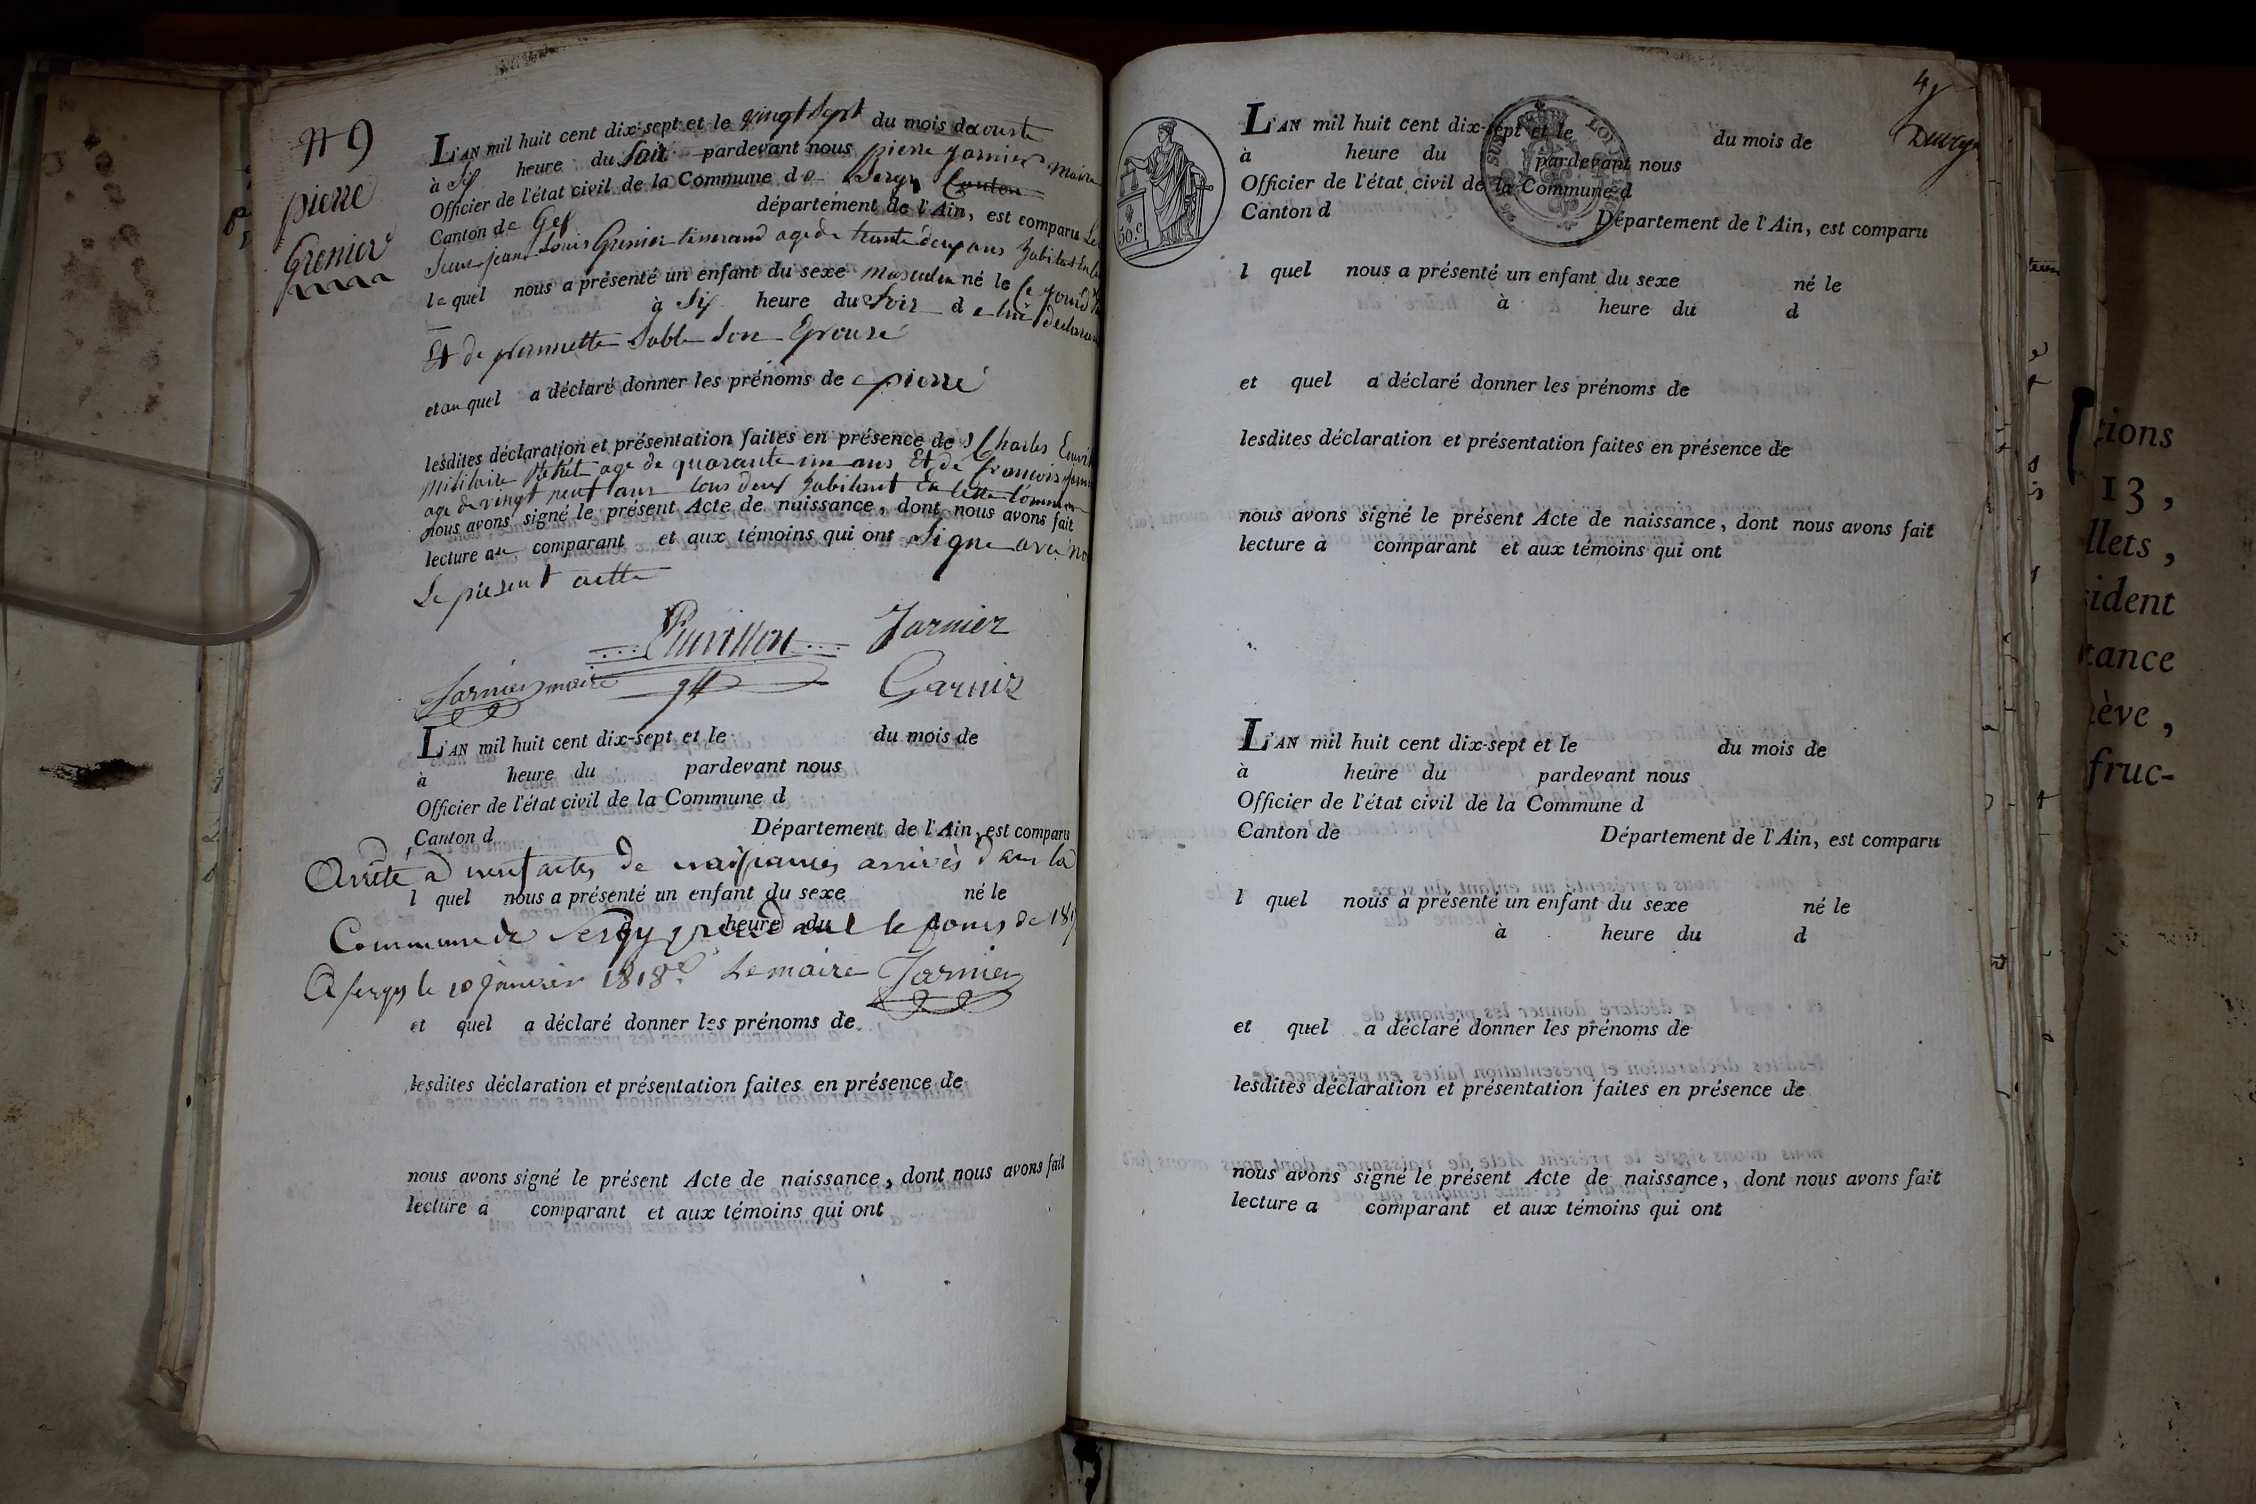 N 9
pierre
Grenier
L'AN mil huit cent dix-sept et le vingt Sept du mois de aouste
à Six heure du Soir pardevant nous pierre Jarnier Maire
Officier de l'état civil de la Commune de Sergy Canton
Canton de Gex département de l'Ain, est comparu Le
Sieur jean Louis Grenier age de trente deux ans
le quel nous a présenté un enfant du sexe masculin né le Ce jourd
à Six heure du Soir de lui declarant
Et de pernnette Son Epouse
et au quel a déclaré donner les prénoms de pierre
lesdites déclaration et présentation faites en présence de Charles
Militaire age de quarante un ans Et de francois
age de vingt neuf ans tous deux habitant en cette Commune
nous avons signé le présent Acte de naissance, dont nous avons fait
lecture au comparant et aux témoins qui ont Signe avec
Le present acte
Jarnier
Jarnier maire
Garnir
L'AN mil huit cent dix-sept et le du mois de
à heure du pardevant nous
Officier de l'état civil de la Commune d
Canton d Département de l'Ain, est comparu
Arrêté à neuf actes de naissances arrivés dans la
l quel nous a présenté un enfant du sexe né le
à heure du d
Commune de Sergy pendant le cours de 181
A sergy le 10 janvier 1818. Le maire Jarnier
et quel a déclaré donner les prénoms de
lesdites déclaration et présentation faites en présence de
nous avons signé le présent Acte de naissance, dont nous avons fait
lecture à comparant et aux témoins qui ont
4
50.c
L'AN mil huit cent dix-sept et le du mois de
à heure du pardevant nous
Officier de l'état civil de la Commune d
Canton d Département de l'Ain, est comparu
l quel nous a présenté un enfant du sexe né le
à heure du d
et quel a déclaré donner les prénoms de
lesdites déclaration et présentation faites en présence de
nous avons signé le présent Acte de naissance, dont nous avons fait
lecture à comparant et aux témoins qui ont
L'AN mil huit cent dix-sept et le du mois de
à heure du pardevant nous
Officier de l'état civil de la Commune d
Canton de Département de l'Ain, est comparu
l quel nous a présenté un enfant du sexe né le
à heure du d
et quel a déclaré donner les prénoms de
lesdites déclaration et présentation faites en présence de
nous avons signé le présent Acte de naissance, dont nous avons fait
lecture a comparant et aux témoins qui ont
tions
13,
llets,
sident
tance
nève,
fruc-